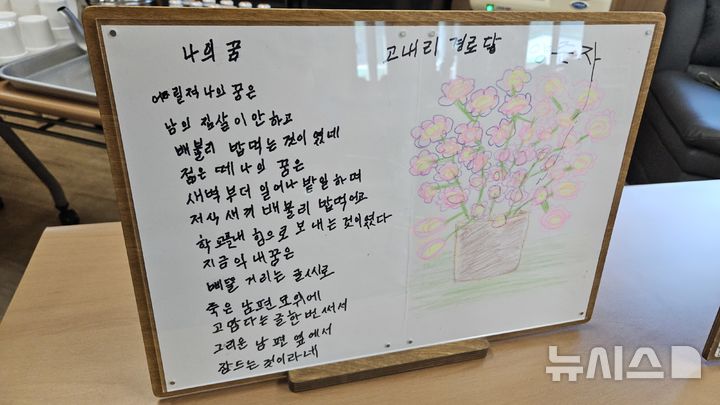 나의 꿈
고내리 경로당
자
어릴적 나의 꿈은
남의 집살이 안하고
배불리 밥먹는 것이 였네
젊은 떼 나의 꿈은
새벽부더 일어나 밭일하며
저식 새끼 배불리 밥먹이고
학교 내 힘으로 보내는 것이였다
지금의 내꿈은
삐뚤 거리는 글씨로
죽은 남편 묘위에
고맙다는 글 한번 써서
그리운 남편 옆에서
잠드는 것이라네
뉴시스